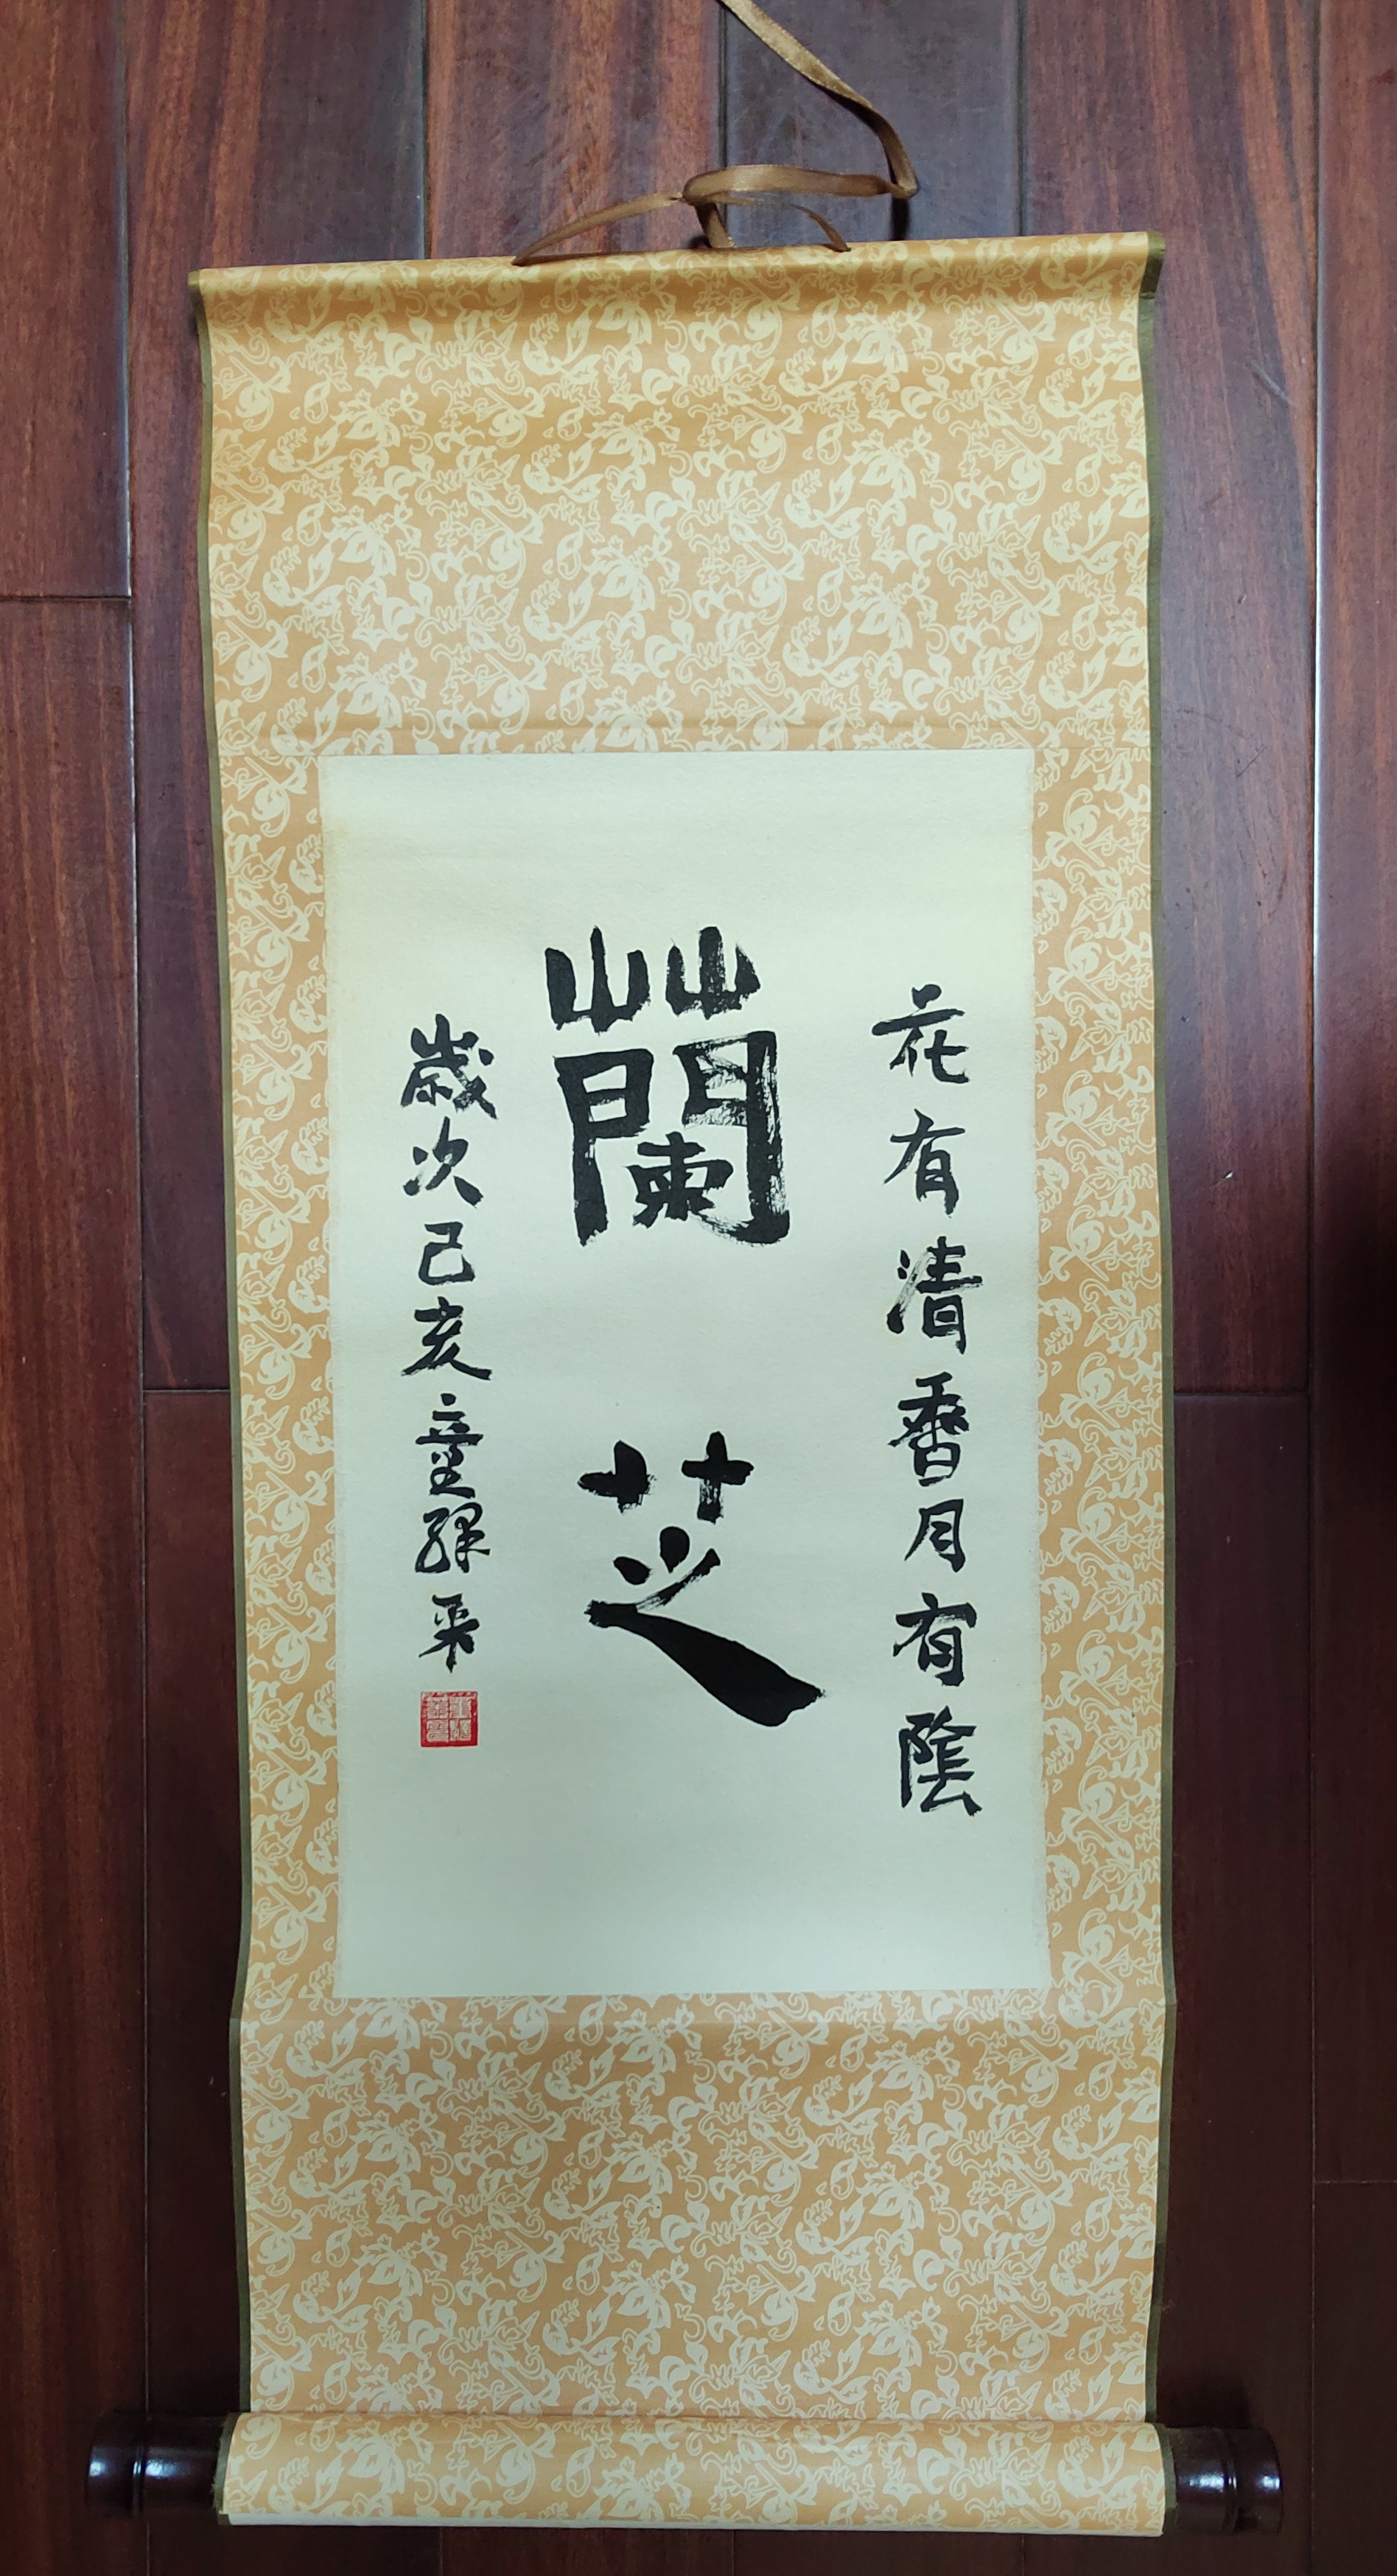 花有清香月有陰
蘭芝
歲次己亥童驛采